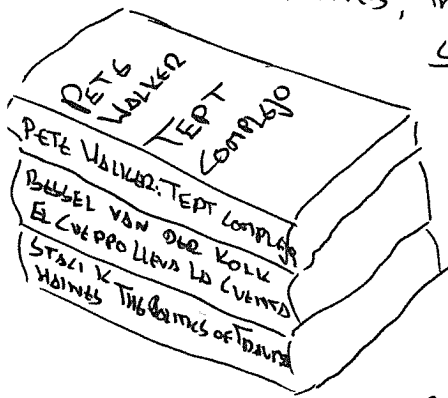 PETE
WALKER
TEPT
COMPLEJO
PETE WALKER: TEPT COMPLEJO
BESSEL VAN DER KOLK
EL CUERPO LLEVA LA CUENTA
STACI K
HAINES THE POLITICS OF TRAUMA